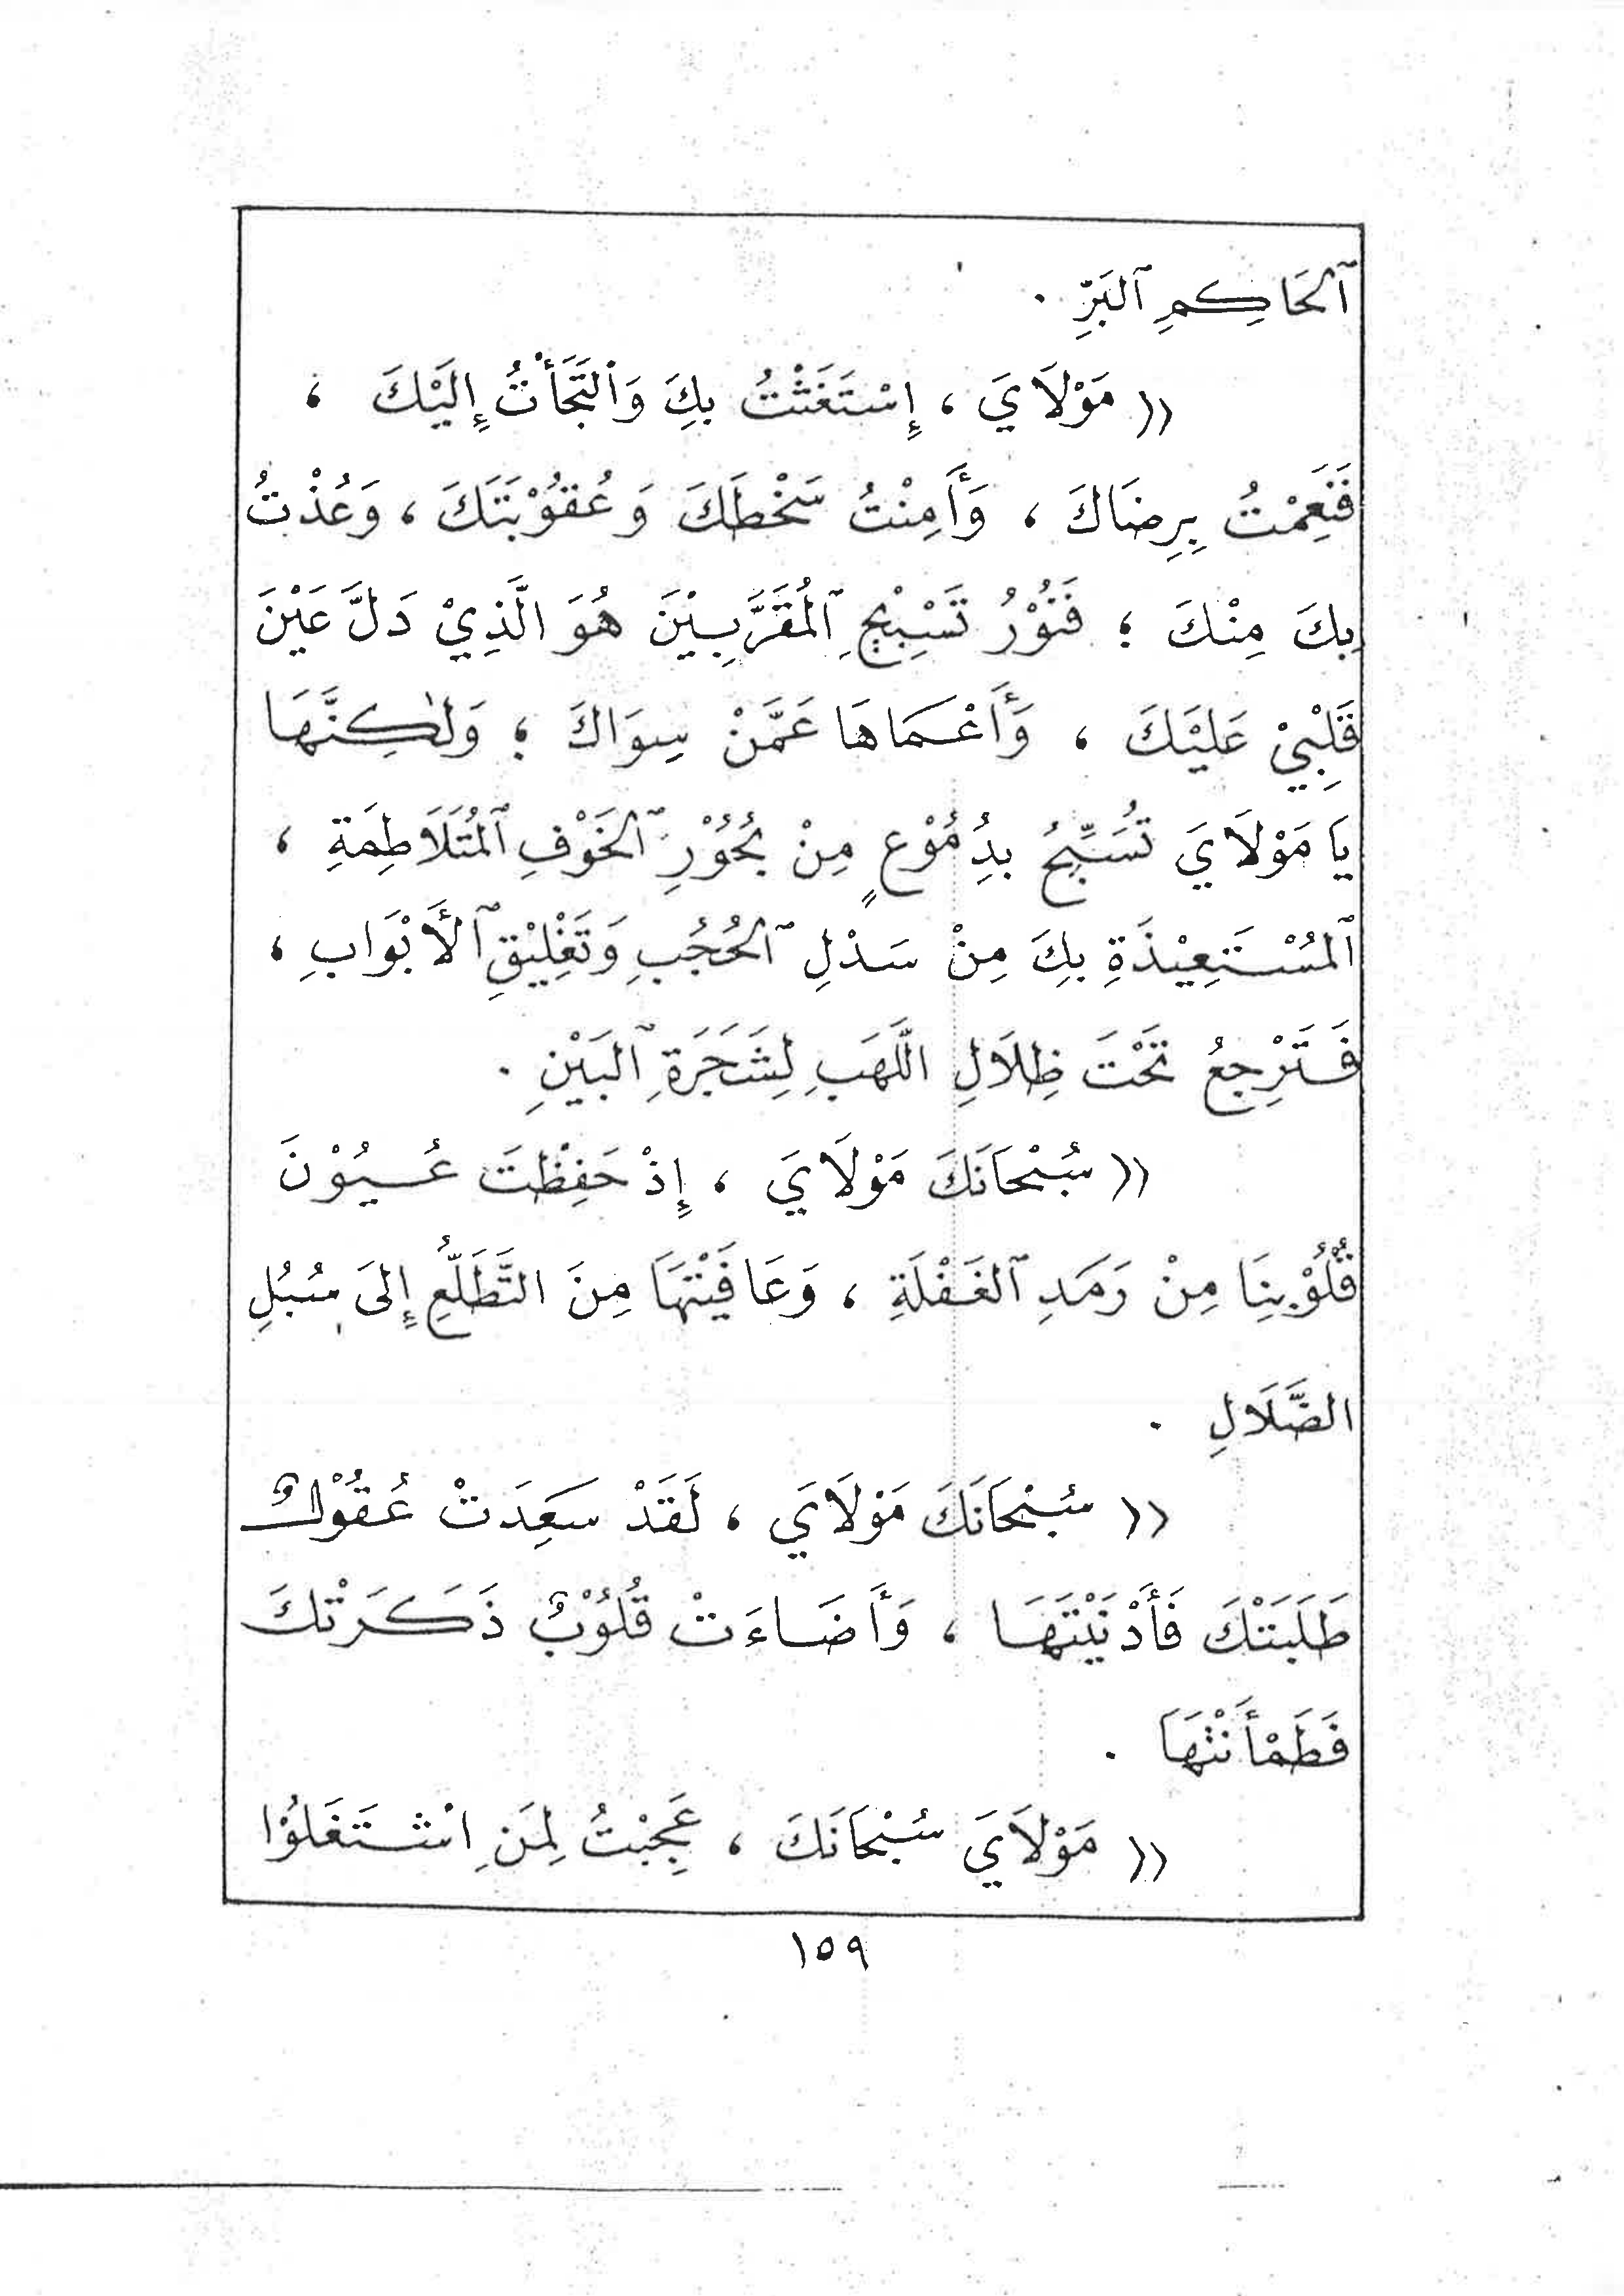 ٱلحَاكِمِ ٱلبَرِّ .
(( مَوْلَايَ ، إِسْتَغَثْتُ بِكَ وَٱلتَجَأْتُ إِلَيْكَ ،
فَنَعِمْتُ بِرِضَاكَ ، وَأَمِنْتُ سَخْطَكَ وَعُقُوْبَتَكَ ، وَعُذْتُ
بِكَ مِنْكَ ؛ فَنُوْرُ تَسْبِيْحِ ٱلمُقَرَّبِيْنَ هُوَ الَّذِيْ دَلَّ عَيْنَ
قَلْبِيْ عَلَيْكَ ، وَأَعْمَاهَا عَمَّنْ سِوَاكَ ؛ وَلٰكِنَّهَا
يَا مَوْلَايَ تُسَبِّحُ بِدُمُوْعٍ مِنْ بُحُوْرِ ٱلخَوْفِ ٱلمُتَلَاطِمَةِ ،
ٱلمُسْتَعِيْذَةِ بِكَ مِنْ سَدْلِ ٱلحُجُبِ وَتَغْلِيْقِ ٱلأَبْوَابِ ،
فَتَرْجِعُ تَحْتَ ظِلَالِ اللَّهَبِ لِشَجَرَةِ ٱلبَيْنِ .
(( سُبْحَانَكَ مَوْلَايَ ، إِذْ حَفِظْتَ عُيُوْنَ
قُلُوْبِنَا مِنْ رَمَدِ ٱلغَفْلَةِ ، وَعَافَيْتَهَا مِنَ التَّطَلُّعِ إِلَىَ سُبُلِ
الضَّلَالِ .
(( سُبْحَانَكَ مَوْلَايَ ، لَقَدْ سَعِدَتْ عُقُوْلٌ
طَلَبَتْكَ فَأَدْنَيْتَهَا ، وَأَضَاءَتْ قُلُوْبٌ ذَكَرَتْكَ
فَطَمْأَنْتَهَا .
(( مَوْلَايَ سُبْحَانَكَ ، عَجِبْتُ لِمَنِ اشْتَغَلُوْا
١٥٩